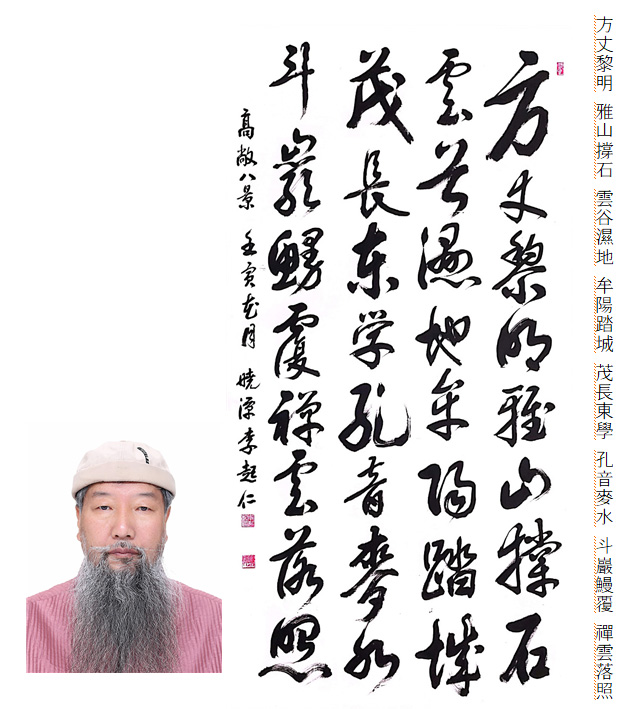 方丈黎明 雅山撐石 雲谷濕地 牟陽踏城 茂長東學 孔音麥水 斗巖鰻覆 禪雲落照
方丈黎明雅山撐石
雲谷濕地牟陽踏城
茂長东学孔音麥水
斗巖鰻覆禪雲落照
高敞八景 壬寅花月 曉 李起仁